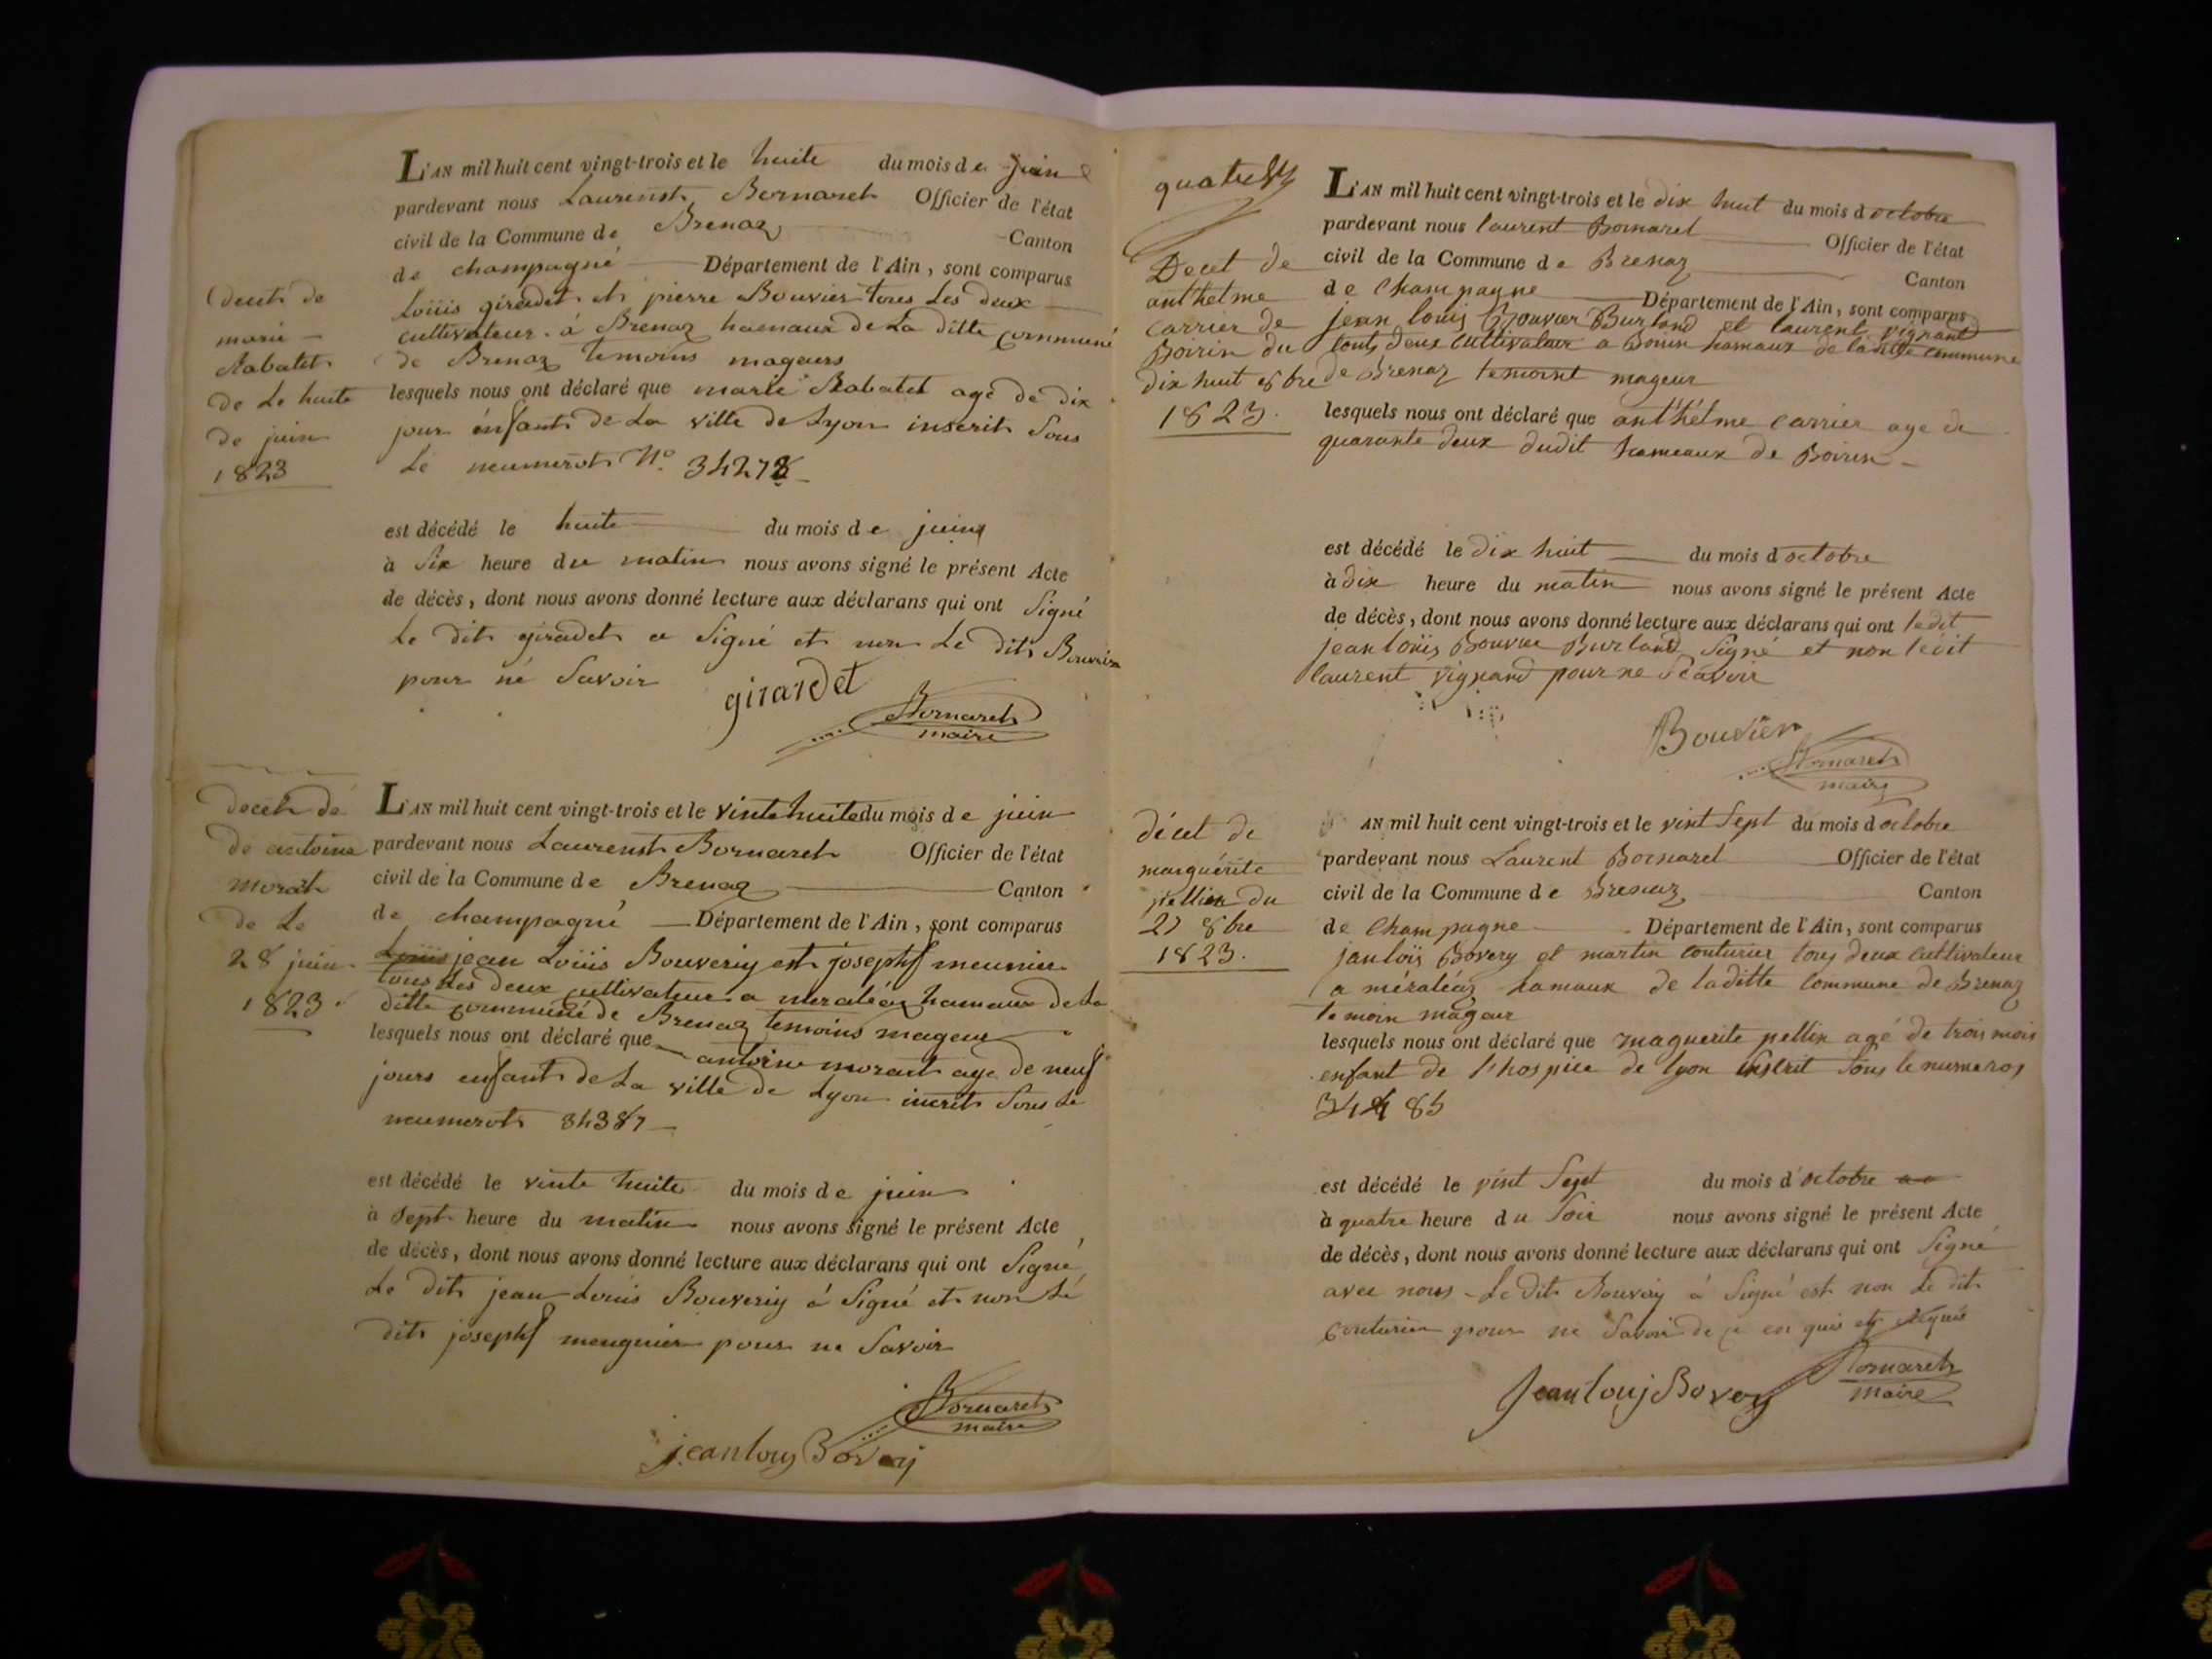 L'AN mil huit cent vingt-trois et le huite du mois de juin
pardevant nous Laurenst Bornaret Officier de l'état
civil de la Commune de Brenaz Canton
de champagné Département de l'Ain, sont comparus
Loüis giradet et pierre Bouvier tous Les deux
cultivateur à Brenaz hamaux de La ditte communé
de Brenaz temoins mageurs
lesquels nous ont déclaré que marie Rabatet agé de dix
jour énfant de La ville de Lyon inscrit Sous
Lé neumerot N.o 34278
est décédé le huite du mois de juin
à Six heure du matin nous avons signé le présent Acte
de décès, dont nous avons donné lecture aux déclarans qui ont Signé
Le dit giradet a Signé et non Le dit Bouvier
pour né Savoir
girardet
Bornaret
maire
de
marie
Rabatet
de Le huite
de juin
1823
L'AN mil huit cent vingt-trois et le vinte huite du mois de juin
pardevant nous Laurenst Bornaret Officier de l'état
civil de la Commune de Brenaz Canton
de champagné Département de l'Ain, sont comparus
Louis jean Loüis Bouveriy est josephf meunier
tous Les deux cultivateur a méraléaz hamaux de La
ditte communé de Brenaz temoins mageur
lesquels nous ont déclaré que antoine morart age de neuf
jours enfant de La ville de Lyon incrit Sous Le
neumerot 34387
est décédé le vinte huite du mois de juin
à Sept heure du matin nous avons signé le présent Acte
de décès, dont nous avons donné lecture aux déclarans qui ont Signé
Le dit jean Louis Bouveriy á Signé et non Lé
dit josephf meugnier pour ne Savoir
Bornaret
maire
jean louy Bovery
decet de
de antoine
morat
de Le
28 juin
1823
quatre
L'AN mil huit cent vingt-trois et le dix huit du mois d octobre
pardevant nous laurent Bornaret Officier de l'état
civil de la Commune de Brenaz Canton
de Champagne Département de l'Ain, sont comparus
jean louis Bouvier Burland et laurent vignand
touts deux cultivateur a Boirin hamaux de laditte commune
de Brenaz temoint mageur
lesquels nous ont déclaré que anthelme carrier age de
quarante deux dudit hameaux de Boirin
est décédé le dix huit du mois d octobre
à dix heure du matin nous avons signé le présent Acte
de décès, dont nous avons donné lecture aux déclarans qui ont ledit
jean loüis Bouvier Burland Signé et non ledit
laurent vignand pour ne Scavoir
Bouvier
Bornaret
maire
Decet de
anthelme
carrier de
Boirin du
dix huit 8bre
1823.
AN mil huit cent vingt-trois et le vint Sept du mois d octobre
pardevant nous Laurent Bornaret Officier de l'état
civil de la Commune de Brenaz Canton
de Champagne Département de l'Ain, sont comparus
janloïs Bovery et martin couturier tous deux cultivateur
a méraléaz hamaux de laditte Commune de Brenaz
temoin mageur
lesquels nous ont déclaré que maguerite pellin agé de trois mois
enfant de l'hospice de lyon inscrit Sous le numeros
34485
est décédé le vint Sept du mois d'octobre
à quatre heure du Soir nous avons signé le présent Acte
de décès, dont nous avons donné lecture aux déclarans qui ont Signé
avec nous Le dit Bouvery á Signé est non Le dit
couturier pour ne Savoir de ce en quis et Requis
Jean louj Bovery
Bornaret
maire
décet de
marguérite
pellin du
27 8bre
1823.